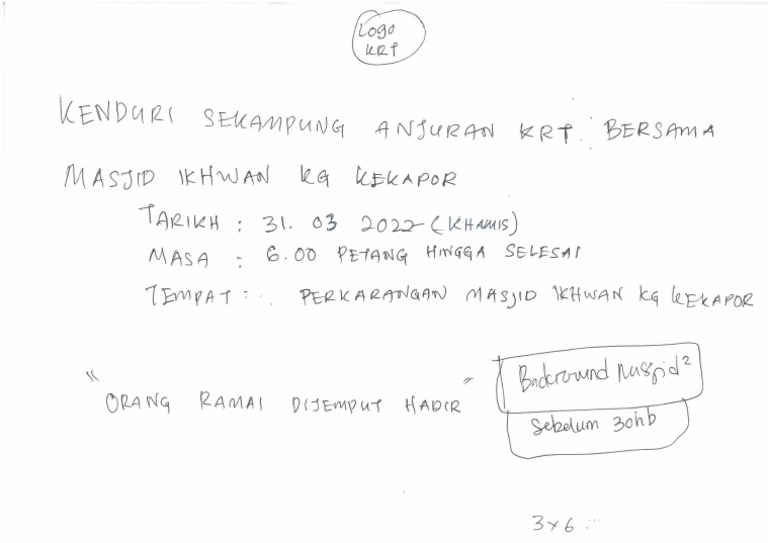 Logo
KRT
KENDURI SEKAMPUNG ANJURAN KRT BERSAMA
MASJID IKHWAN KG KEKAPOR
TARIKH : 31. 03 2022 (KHAMIS)
MASA : 6.00 PETANG HINGGA SELESAI
TEMPAT : PERKARANGAN MASJID IKHWAN KG KEKAPOR
"ORANG RAMAI DIJEMPUT HADIR"
Backround Masjid²
Sebelum 30hb
3x6